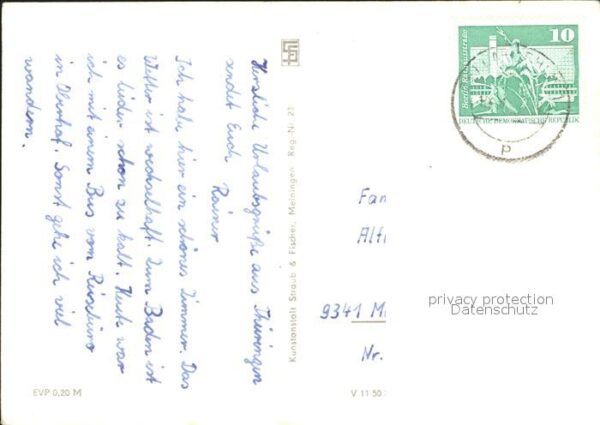 Herzliche Urlaubsgrüße aus Thüringen
sendet Euch
Rainer
Ich habe hier ein schönes Zimmer. Das
Wetter ist wechselhaft. Zum Baden ist
es leider schon zu kalt. Heute war
ich mit einem Bus vom Reisebüro
in Oberhof. Sonst gehe ich viel
wandern.
EVP 0,20 M
Kunstanstalt Straub & Fischer, Meiningen Reg.-Nr. 21
V 11 50
10
DEUTSCHE DEMOKRATISCHE REPUBLIK
P
Fam
Alt
9341 M
Nr.
privacy protection
Datenschutz